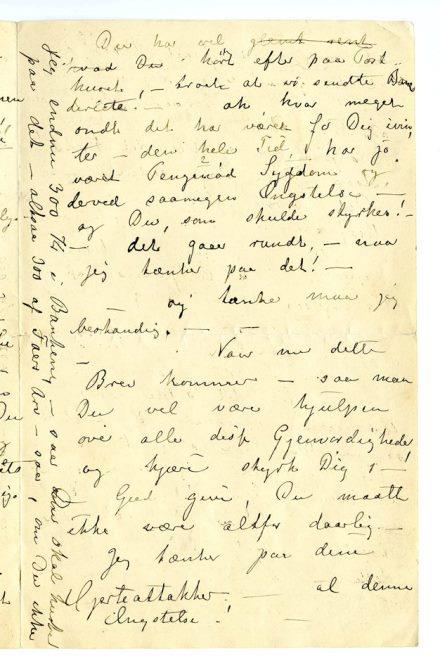 Du har vel glemt sendt
hvad Du hört efter paa Post-
huset, – troet at vi sendte Dem
derete. – ak hvor meget
ondt det har været for Dig i vin-
ter – den hele Tid, har jo
været Pengenöd Sygdom og
derved saamegen Ængstelse –
og Du, som skulde styrkes! –
– det gaar rundt, – naar
jeg tænker paa det! –
og tænke maa jeg
bestandig. – –
– Naar nu dette
Brev kommer – saa maa
Du vel være hjulpen
over alle disse Gjenvordigheder
og kjære styrk Dig –
Gud give, Du maatte
ikke være altfor daarlig –
Jeg tænker paa dine
Hjerteattakker, – al denne
Ængstelse! –
Jeg endnu 300 Kr i Banken – saa Du skal huske
paa det – altsaa 300 af Faers Arv – saa, om Du ikke